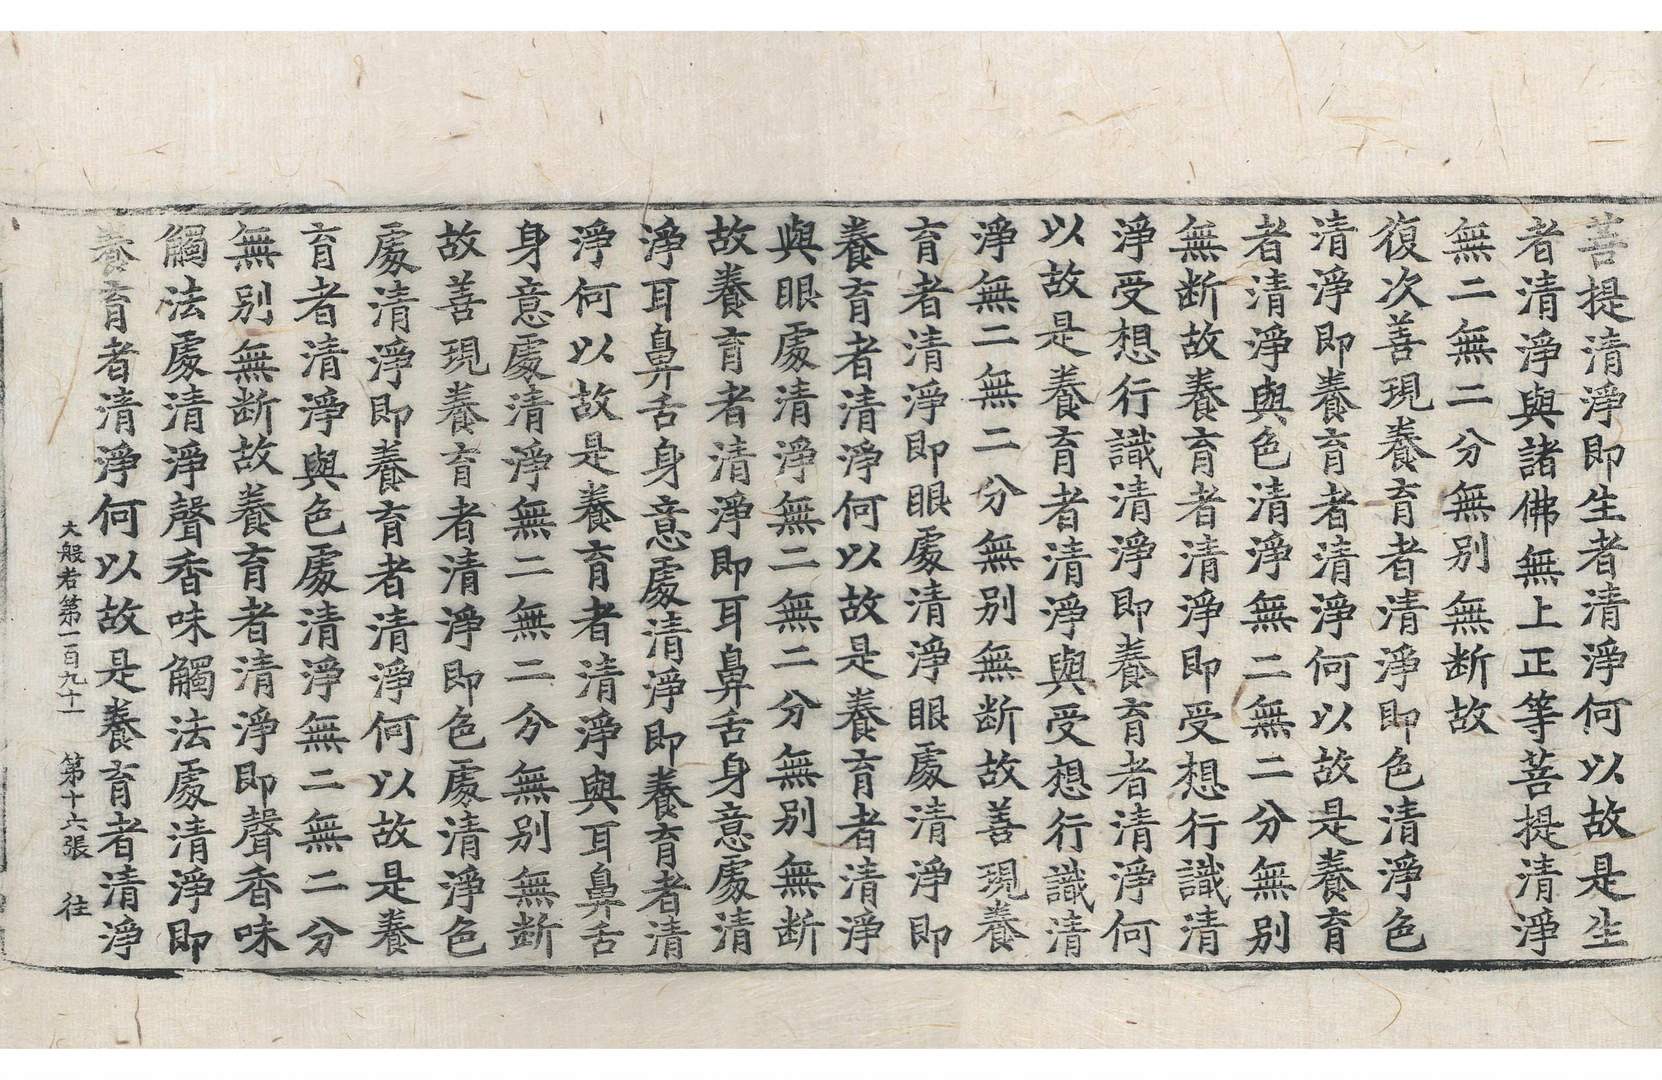 菩提清淨即生者清淨何以故是生
者清淨與諸佛無上正等菩提清淨
無二無二分無別無断故
復次善現養育者清淨即色清淨色
清淨即養育者清淨何以故是養育
者清淨與色清淨無二無二分無別
無断故養育者清淨即受想行識清
淨受想行識清淨即養育者清淨何
以故是養育者清淨與受想行識清
淨無二無二分無別無断故善現養
育者清淨即眼處清淨眼處清淨即
養育者清淨何以故是養育者清淨
與眼處清淨無二無二分無別無断
故養育者清淨即耳鼻舌身意處清
淨耳鼻舌身意處清淨即養育者清
淨何以故是養育者清淨與耳鼻舌
身意處清淨無二無二分無別無断
故善現養育者清淨即色處清淨色
處清淨即養育者清淨何以故是養
育者清淨與色處清淨無二無二分
無別無断故養育者清淨即聲香味
觸法處清淨聲香味觸法處清淨即
養育者清淨何以故是養育者清淨
大般若第一百九十一 第十六張 往